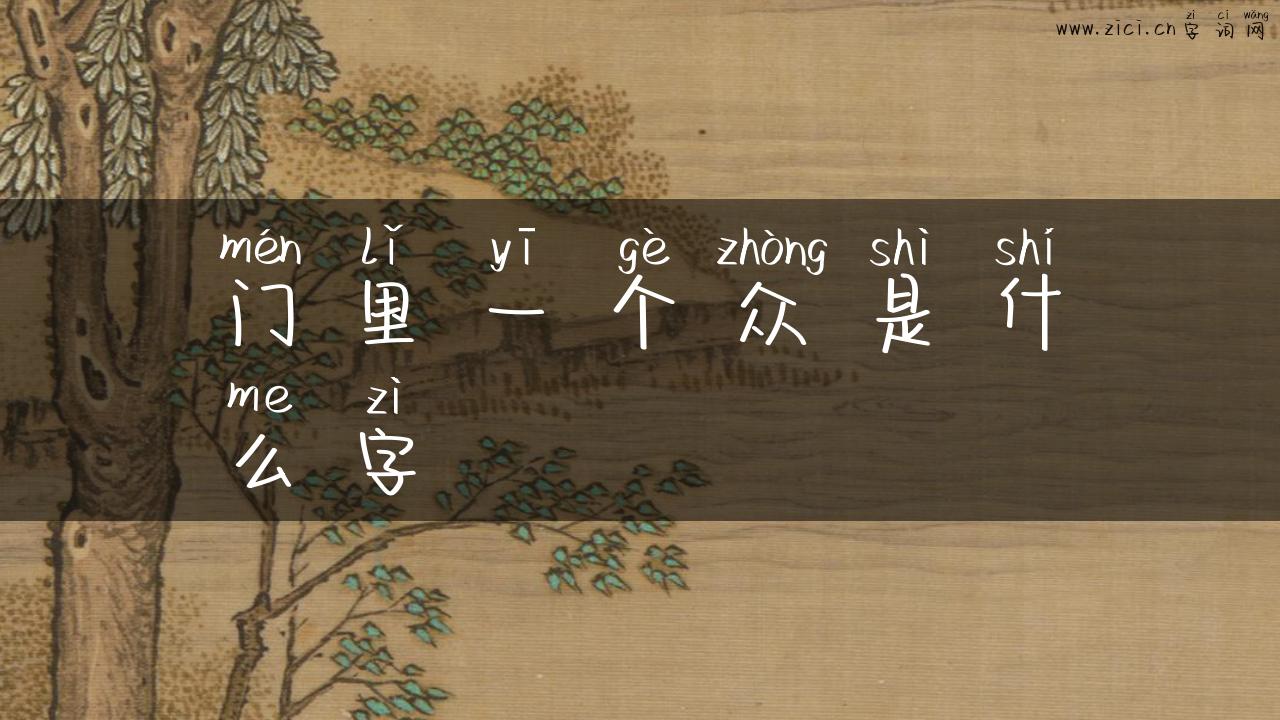 zì cí wǎng
www.zici.cn 字词网
mén lǐ yī gè zhòng shì shí
门里一个众是什
me zì
么字